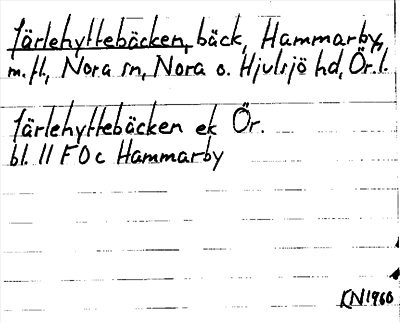 Järlehyttebäcken, bäck, Hammarby,
m.fl., Nora sn, Nora o. Hjulsjö hd, Ör.l.
Järlehyttebäcken ek Ör.
bl. 11 F 0 c Hammarby
KN 1960